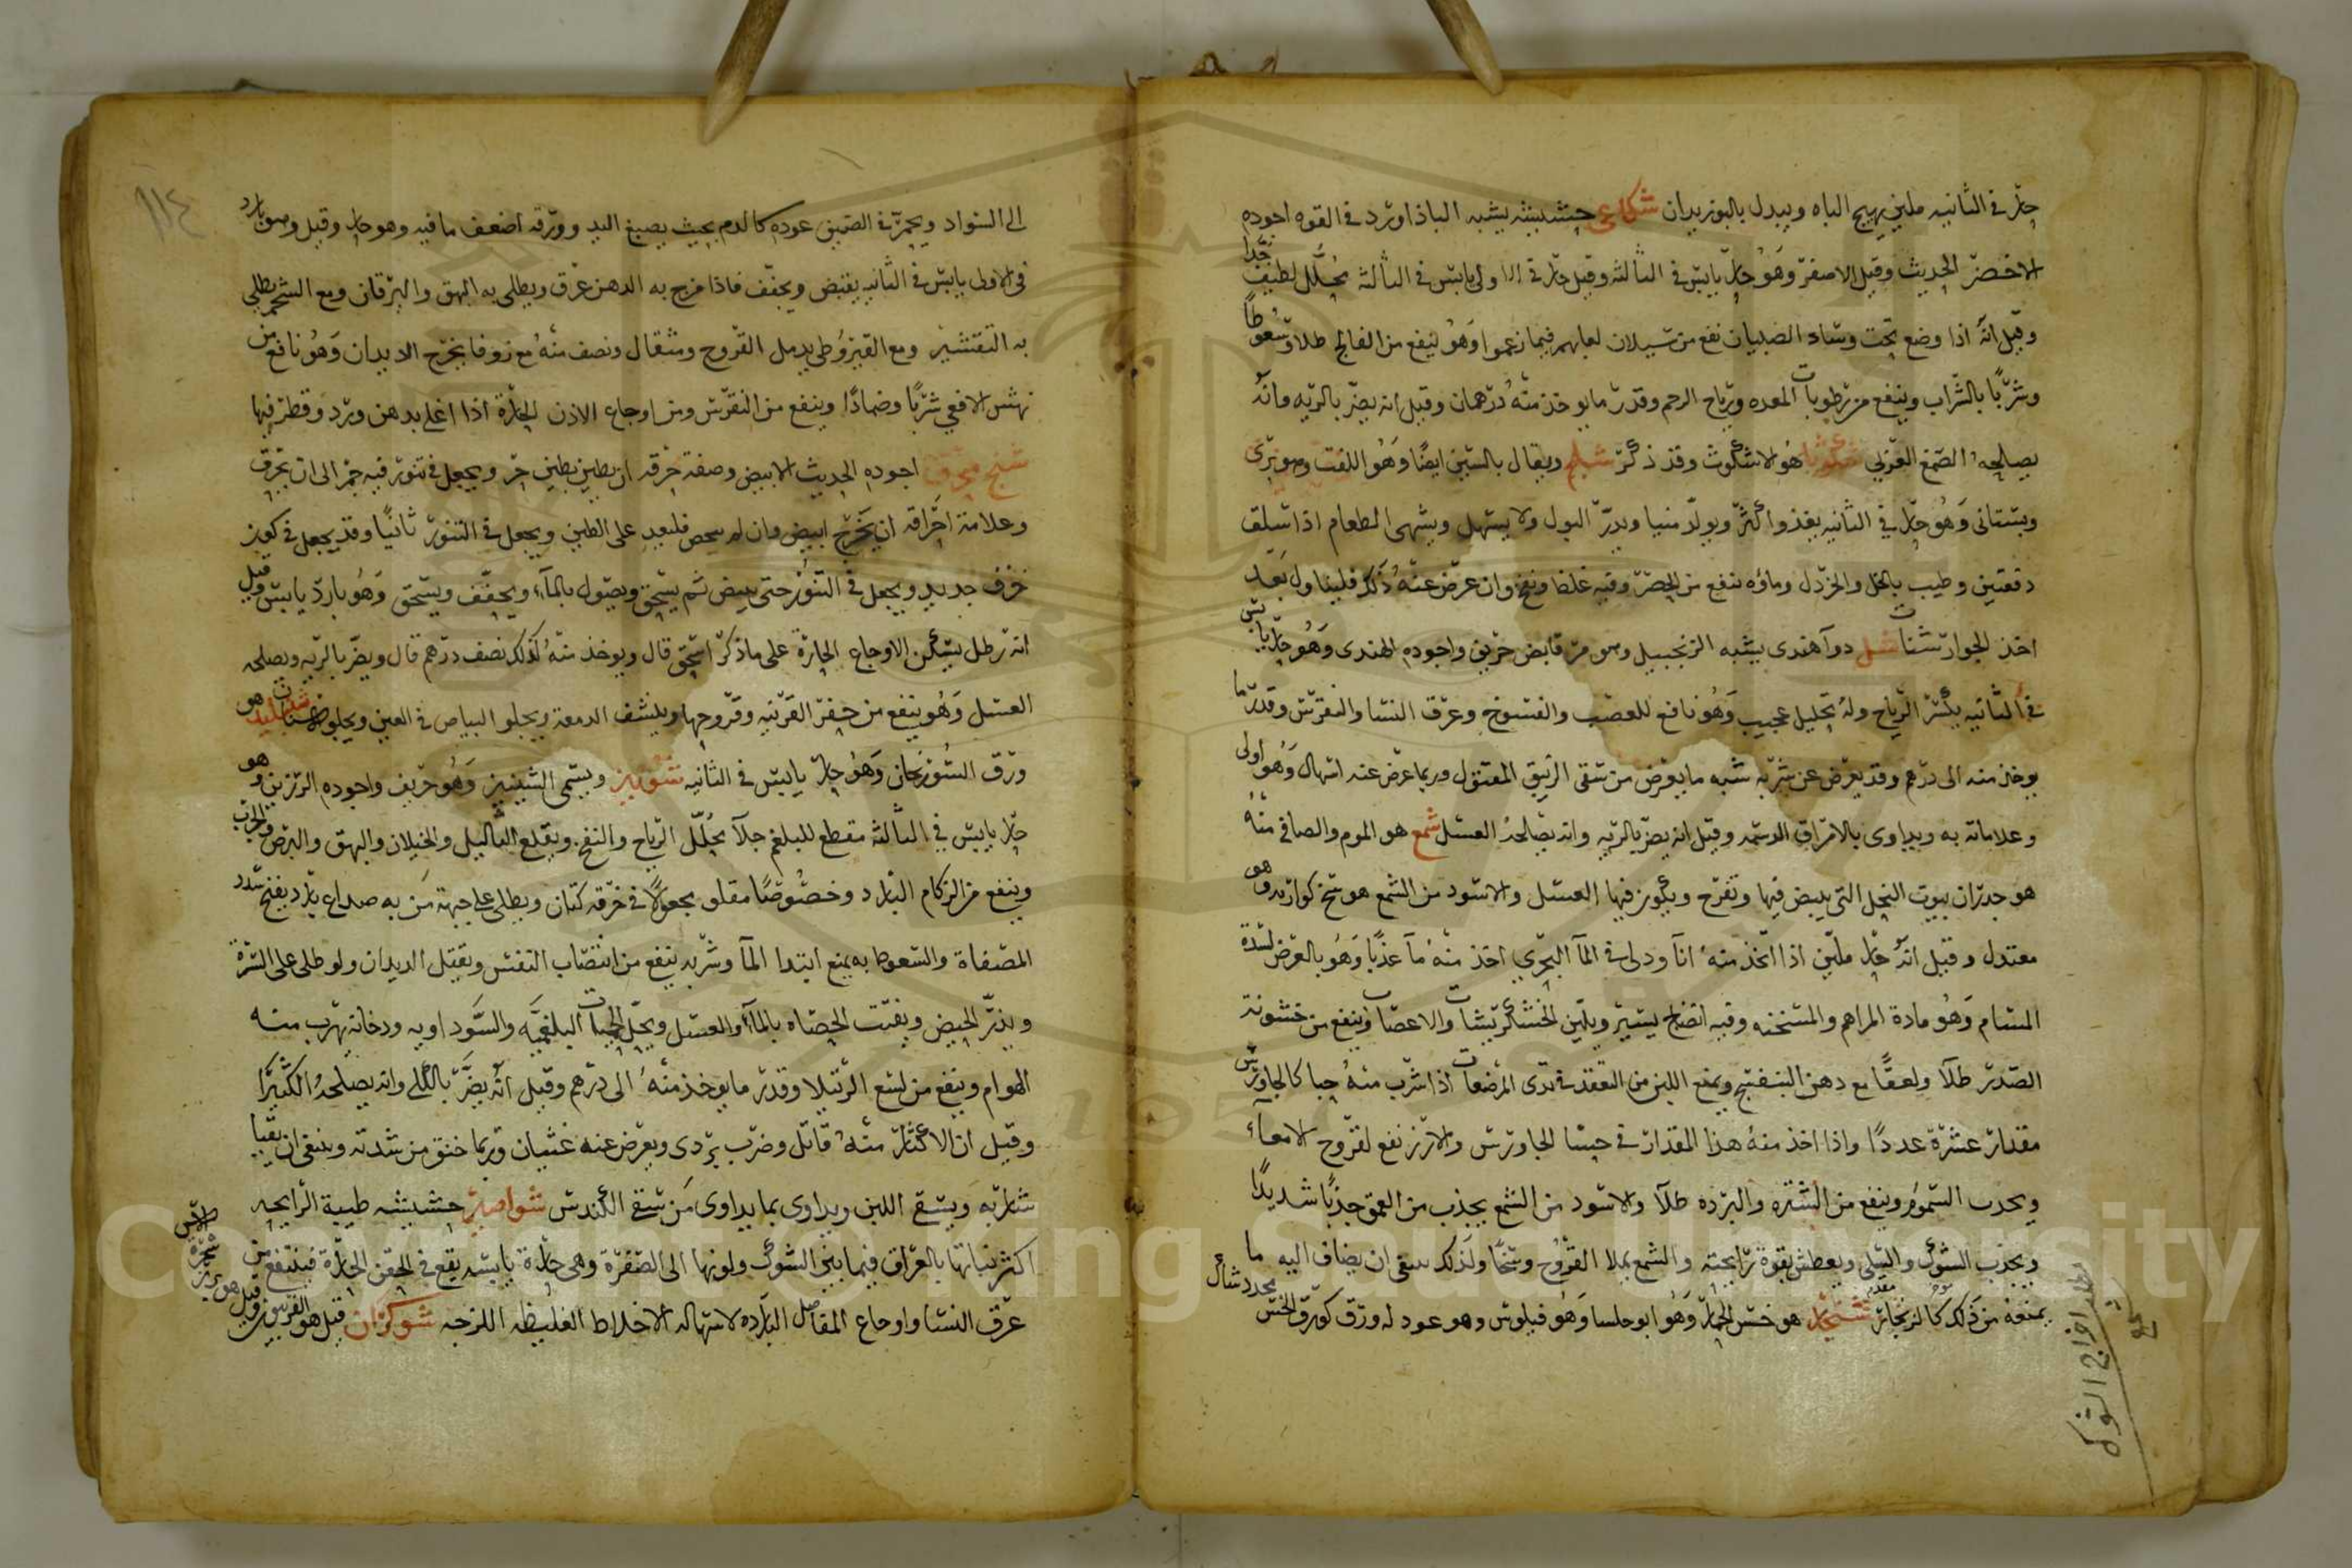 حار في الثانيه ملين يهيج الباه ويبدل بالبوزيدان شكاعى حشيشه يشبه الباذاورد في القوه اجوده
الاخضر الحديث وقيل الاصفر وهو حار يابس في الثالثه وقيل حار في الاولى يابس في الثالثه محلل لطيف جدا
وقيل انه اذا وضع تحت وساد الصبيان نفع من سيلان لعابهم فيما زعموا وهو ينفع من الفالج طلاء وسعوطا
وشربا بالشراب وينفع من رطوبات المعده ورياح الرحم وقدر مايوخذ منه درهمان وقيل انه يضر بالريه وانه
يصلحه الصمغ العربي هو الاشكوث وقد ذكر شلجم ويقال بالسين ايضا وهو اللفت وهو بري
وبستاني وهو حار في الثانيه يغذوا كثر ويولد منيا ويدر البول ولا يسهل ويشهى الطعام اذا سلق
دفعتين وطيب بالخل والخردل وماؤه ينفع من الحصر وفيه غلظ ونفخ وان عرض عنه ذلك فليناول بعد
اخذ الجوارشنات شل دوآ هندى يشبه الزنجبيل وهو مر قابض حريف واجوده الهندى وهو حار يابس
في الثانيه يكسر الرياح وله تحليل عجيب وهو نافع للعصب والفسوخ وعرق النسا والنقرس وقدر ما
يوخذ منه الى درهم وقد يعرض عن شربه شبه ما يعرض من سقى الزيبق المقتول وربما عرض عنه اسهال وهو اولى
وعلاماته به ويداوى بالامراق الدسمه وقيل انه يضر بالريه وانه يصلحه العسل شمع هو الموم والصافي منه
هو جدران بيوت النحل التي يبيض فيها وتفرخ ويكون فيها العسل والاسود من الشمع هو وسخ كوارته وهو
معتدل وقيل انه حار ملين اذا اتخذ منه انآ ودلى في المآ البحري اخذ منه مآ عذبا وهو بالعرض لسده
المسام وهو مادة المراهم والمسخنه وفيه انضاج يسير ويلين الخشكريشات والاعصاب وينفع من خشونة
الصدر طلآ ولعقا مع دهن البنفسج ويمنع اللبن من التعقد في ثدى المرضعات اذا شرب منه حبا كالجاورس
مقدار عشرة عددا واذا اخذ منه هذا المقدار في حسا الجاورس والارز نفع لقروح الامعاء
ويجذب السموم وينفع من الشتره والبرده طلآ والاسود من الشمع يجذب من العمق جذبا شديدا
ويجذب الشوك والسلى ويعطش بقوة رايحته والشمع يملا القروح وسخا ولذلك ينبغي ان يضاف اليه ما
يمنعه من ذلك كالزنجار شنجار هو خس الحمار وهو ابوحلسا وهو فيلوس وهو عود له ورق كورق الخس محدد شاك
شمع
الى السواد ويحمر في الصيف عوده كالدم بحيث يصبغ اليد وورقه اضعف ما فيه وهو حار وقيل وهو بارد
في الاولى يابس في الثانيه يقبض ويجفف فاذا مزج به الدهن عرق ويطلى به البهق واليرقان ومع الشحم يطلى
به التقشير ومع القيروطى يدمل القروح ومثقال ونصف منه مع زوفا يخرج الديدان وهو نافع من
نهش الافعي شربا وضمادا وينفع من النقرس ومن اوجاع الاذن الحارة اذا اغلي بدهن ورد وقطر فيها
شنج محرق اجوده الحديث الابيض وصفة حرقه ان يطين بطين حر ويجعل في تنور فيه جمر الى ان يحرق
وعلامة احراقه ان يخرج ابيض وان لم يبيض فليعد على الطين ويجعل في التنور ثانيا وقد يجعل في كوز
خزف جديد ويجعل في التنور حتى يبيض ثم يسحق ويصول بالماء ويجفف ويسحق وهو بارد يابس وقيل
انه رطل يسكن الاوجاع الحارة على ما ذكر اسحق قال ويوخذ منه كذلك نصف درهم قال ويضر بالريه ويصلحه
العسل وهو ينفع من حفر القرنيه وقروحها وينشف الدمعة ويجلو البياض في العين ويجلوا هو
ورق السورنجان وهو حار يابس في الثانيه شونيز ويسمى الشينيز وهو حريف واجوده الرزين وهو
حار يابس في الثالثه مقطع للبلغم جلآ يحلل الرياح والنفخ ويقلع الثاليل والخيلان والبهق والبرص والجرب
وينفع من الزكام البارد وخصوصا مقلو مجعولا في خرقة كتان ويطلى على جبهة من به صداع بارد يفتح سدد
المصفاة والسعوط به يمنع ابتدا المآ وشربه ينفع من انتصاب النفس ويقتل الديدان ولو طلى على السرة
ويدر الحيض ويفتت الحصاه بالماء والعسل ويحل الحميات البلغميه والسوداويه ودخانه تهرب منه
الهوام وينفع من لسع الرتيلا وقدر مايوخذ منه الى درهم وقيل انه يضر بالكلى وانه يصلحه الكثيرا
وقيل ان الاكثار منه قاتل وضرب يردى ويعرض عنه غثيان وربما خنق من شدته وينبغي ان يقيا
شاربه ويسقى اللبن ويداوى بما يداوى من سقي الكندس شواصير حشيشه طيبة الرايحه
اكثر نباتها بالعراق فيما بين الشوك ولونها الى الصفرة وهى حارة يابسه يقع في الحقن الحارة فينتفع من
عرق النسا واوجاع المفاصل البارده لاسهاله الاخلاط الغليظه اللزجه شوكران قيل هو
١١٤